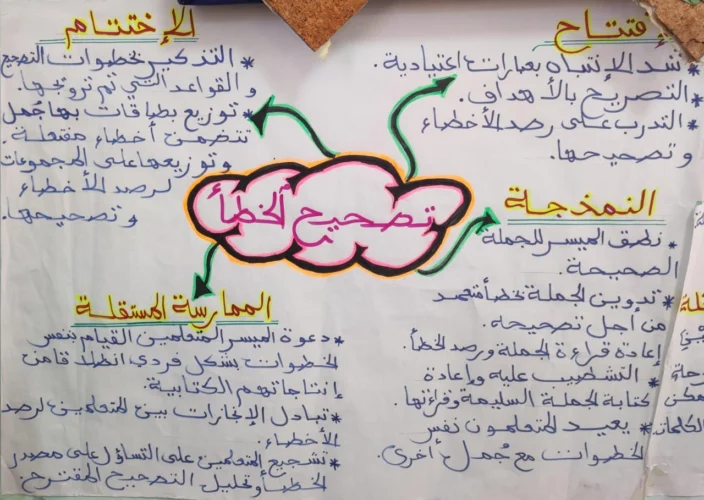 تصحيح الخطأ
إفتتاح
* شد الإنتباه بعبارات اعتيادية.
* التصريح بالأهداف.
* التدرب على رصد الأخطاء
وتصحيحها.
النمذجة
* نطق الميسر للجملة
الصحيحة.
* تدوين الجملة بخطأ متعمد
من أجل تصحيحه.
إعادة قراءة الجملة ورصد الخطأ.
* التشطيب عليه وإعادة
كتابة الجملة السليمة وقراءتها.
* يعيد المتعلمون نفس
الخطوات مع جمل أخرى.
الممارسة المستقلة
* دعوة الميسر المتعلمين القيام بنفس
الخطوات بشكل فردي انطلاقا من
إنتاجاتهم الكتابية.
* تبادل الإنجازات بين المتعلمين لرصد
الأخطاء.
* تشجيع المتعلمين على التساؤل على مصدر
الخطأ وتحليل التصحيح المقترح.
الإختتام
* التذكير بخطوات التصحيح
و القواعد التي تم ترويجها.
* توزيع بطاقات بها جمل
تتضمن أخطاء مفتعلة.
وتوزيعها على المجموعات
لرصد الأخطاء
وتصحيحها.